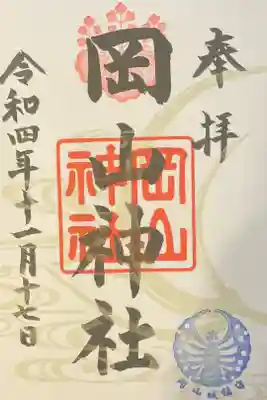 奉拝
岡山神社
岡山神社
令和四年十一月十七日
岡山城鎮守